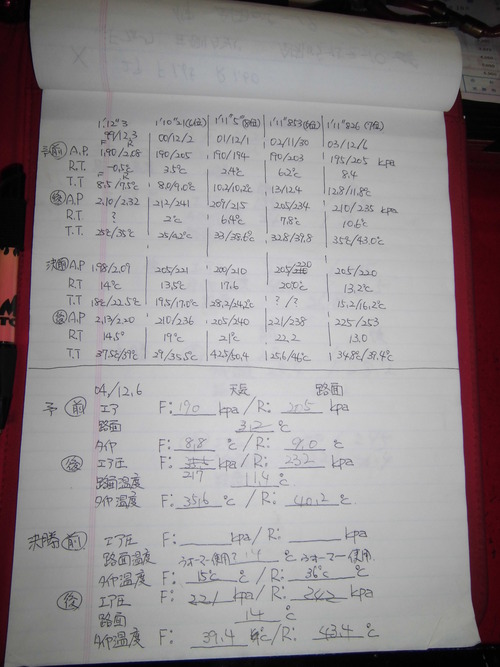 1'12"3 1'10"21(6位) 1'11"5"(8位) 1'11"853(8位) 1'11"826 (7位)
99/12.3 00/12/2 01/12/1 02/11/30 03/12/6
F R
予 前 A.P. 1.90/2.08 190/205 190/194 190/203 195/205 kpa
R.T -0.5℃ 3.5℃ 2.4℃ 6.2℃ 8.4
F R
T.T 8.5/7.5℃ 8.0/9.0℃ 10.2/10.2℃ 13/12.4 12.8/11.8℃
後 A.P 2.10/2.32 212/241 209/215 205/234 210/235 kpa
R.T ? 2℃ 6.4℃ 7.8℃ 10.6℃
T.T. 25℃/35℃ 25/42℃ 33/38.6℃ 32.8/39.8 35℃/43.0℃
決 前 A.P 1.98/2.09 205/221 200/210 205/220 205/220
R.T 14℃ 13.5℃ 17.6 20.0℃ 13.2℃
T.T 18℃/22.5℃ 19.5/17.0℃ 28.2/24.2℃ ?/? 15.2/16.2℃
後 A.P 2.13/2.20 210/236 205/240 221/238 225/253
R.T 14.5° 19℃ 21℃ 22.2 13.0
T.T 37.5℃/39℃ 29/35.5℃ 42.5/50.4 25.6/46℃ 34.8℃/39.4℃
04/12.6 天気 路面
予 前 エア F: 190 kpa/R: 205 kpa
路面 3.2 ℃
タイヤ F: 8.8 ℃/R: 9.0 ℃
後 エア圧 F: 217 kpa/R: 232 kpa
路面温度 11.4 ℃
タイヤ温度 F: 35.6 ℃/R: 40.2 ℃
決勝 前 エア圧 F: kpa/R: kpa
路面温度 ウォーマー使用? 14 ℃ ウォーマー使用
タイヤ温度 F: 15℃ ℃/R: 36℃ ℃
後 エア圧 F: 221 kpa/R: 242 kpa
路面 14 ℃
タイヤ温度 F: 39.4 ℃/R: 43.4 ℃